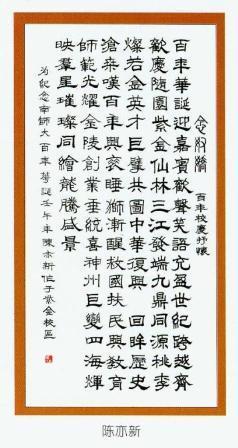 念奴嬌 百年校慶抒懷
百年華誕迎嘉賓歡聲笑語充盈世紀跨越齊
歡慶隨園紫金仙林三江發端九鼎同源桃李
燦若金英才巨擘共圖中華復興 回眸歷史
滄桑嘆百年興衰睡獅漸醒救國扶民興教育
師範光耀金陵創業垂統喜神州巨變四海輝
映羣星璀璨同繪龍騰盛景
为紀念南師大百年華誕壬午年陳亦新作于紫金校區
陈亦新